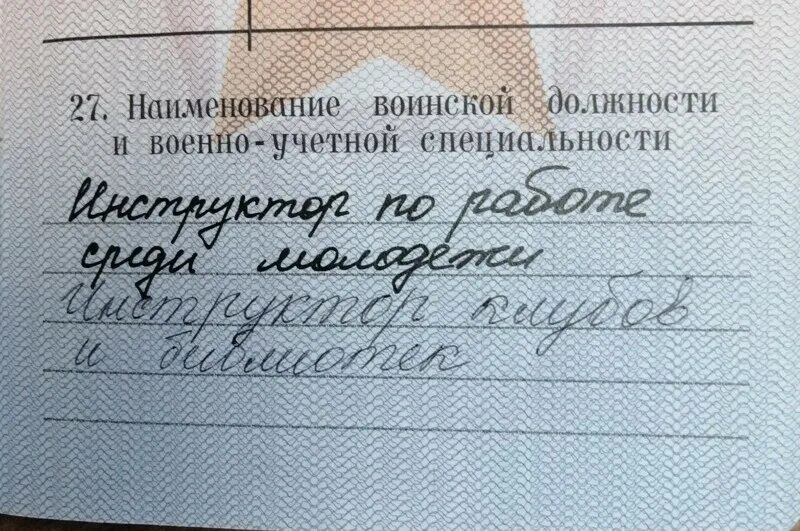 27. Наименование воинской должности
и военно-учетной специальности
Инструктор по работе
среди молодежи
Инструктор клубов
и библиотек